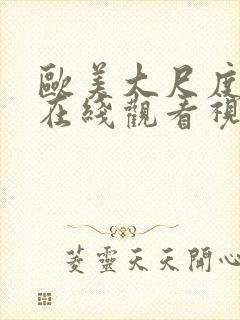 歐美大尺度
在綫觀看視
菱靈天天開心